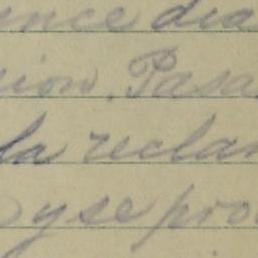 ence dia
cion. Pasa
la reclam
y se pro